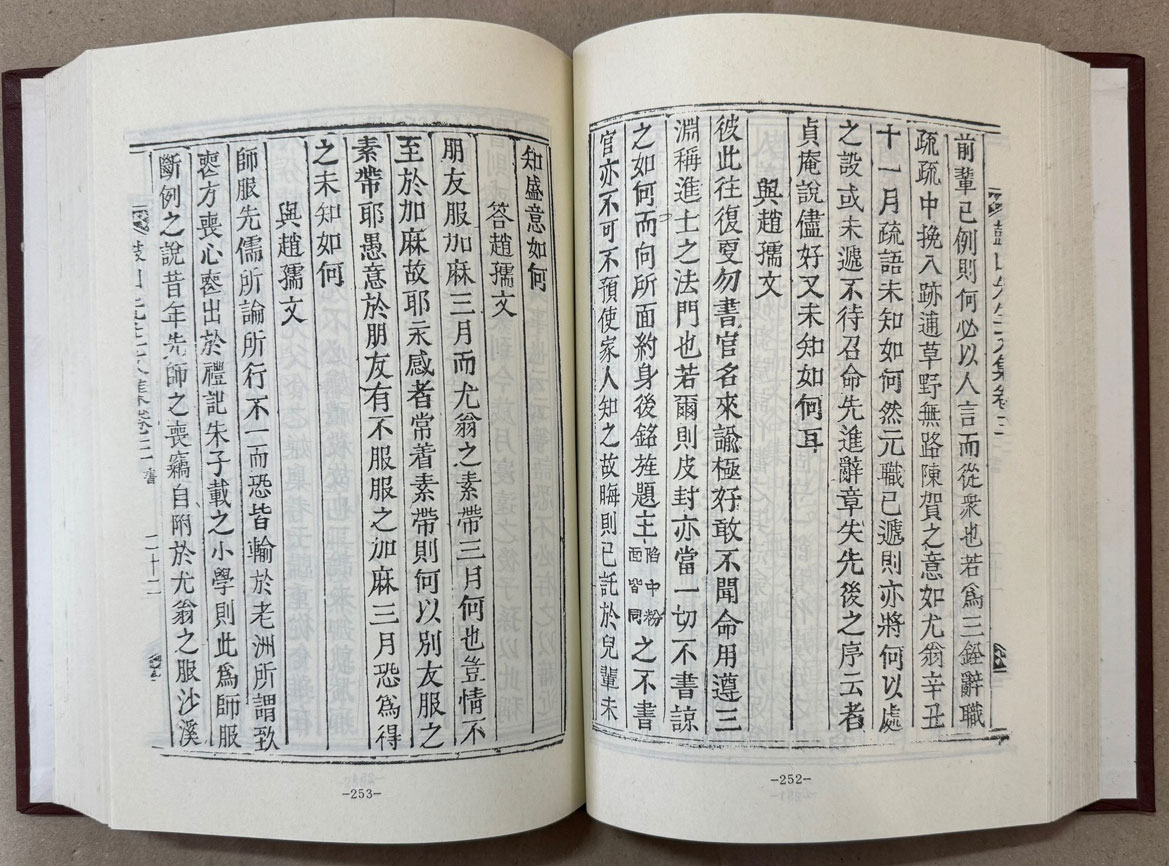 前輩已例則何必以人言而從衆也若爲三銓辭職
疏疏中挽入跡逋草野無路陳賀之意如尤翁辛丑
十一月疏語未知如何然元職已遞則亦將何以處
之設或未遞不待召命先進辭章失先後之序云者
貞庵說儘好又未知如何耳
與趙孺文
彼此往復戛勿書官名來諭極好敢不聞命用遵三
淵稱進士之法門也若爾則皮封亦當一切不書諒
之如何而向所面約身後銘旌題主陷中粉面皆同之不書
官亦不可不預使家人知之故晦則已託於兒輩未
-252-
知盛意如何
答趙孺文
朋友服加麻三月而尤翁之素帶三月何也豈情不
至於加麻故耶永感者常着素帶則何以別友服之
素帶耶愚意於朋友有不服服之加麻三月恐爲得
之未知如何
與趙孺文
師服先儒所論所行不一而恐皆輸於老洲所謂致
喪方喪心喪出於禮記朱子載之小學則此爲師服
斷例之說昔年先師之喪竊自附於尤翁之服沙溪
書 二十二
-253-